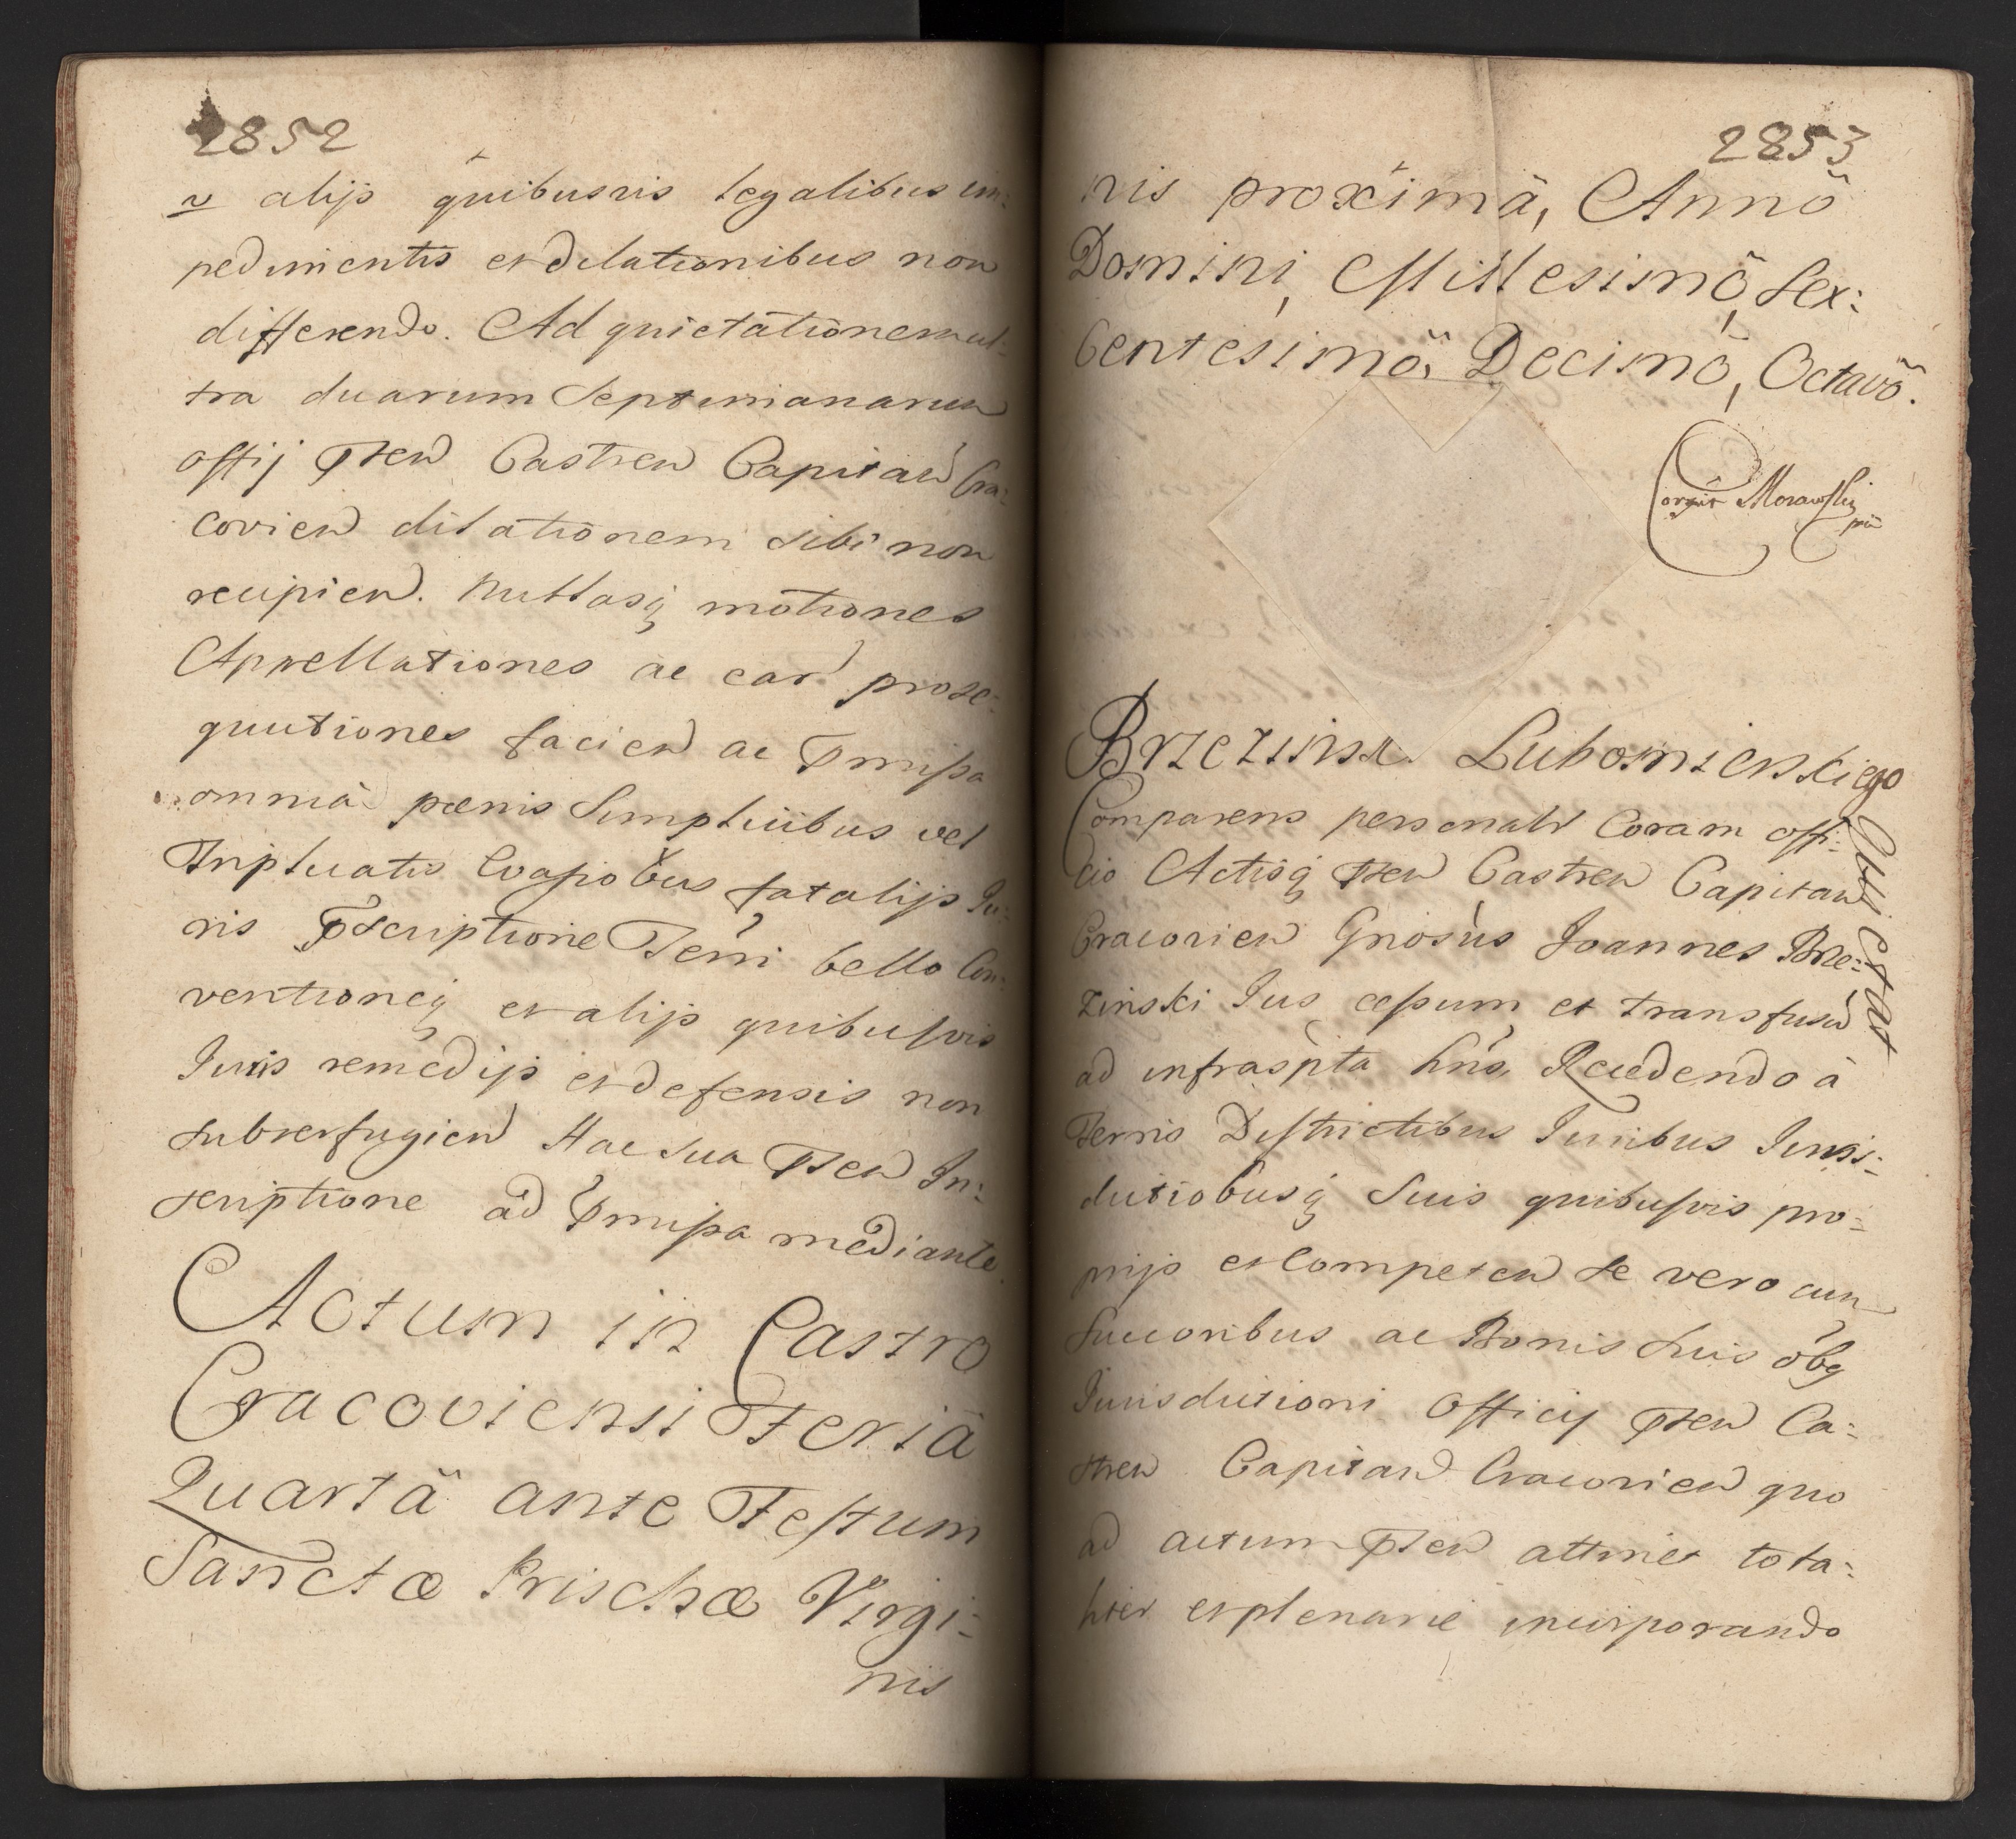 2852
et alijs quibusvis legalibus im:
pedimentis et dilationibus non
differendo. Ad quietationem ul:
tra duarum Septimanarum
Offij pnten Castren Capitan Cra:
covien dilationem sibi non
recipien. Nullasq motiones
Appellationes ac ear prose:
quutiones facien ac pmissa
omnia pœnis Simplicibus vel
Triplicatis Evasiobus fatalijs Ju:
ris pscriptione Terri bello Con:
ventioneq et alijs quibusvis
Juris remedijs et defensis non
subterfugien Hac sua pnten In:
scriptione ad pmissa mediante.
Actum in Castro
Cracoviensi Feriâ
Quartâ ante Festum
Sanctæ Prischæ Virgi:
nis
2853
nis proximâ, Annô
Domini, Millesimô, Sex:
Centesimô, Decimô, Octavô.
Morawski
mp
Brzezinski Lubomienskiego
Obligat
Comparens personalr Coram Offi:
cio Actisq pnten Castren Capitan
Cracovien Gnosus Joannes Brze:
zinski Jus cessum et transfusu
ad infrascpta hns, Recedendo à
Terris Districtibus Juribus Juris:
dictiobusq Suis quibusvis pro:
prijs et Competen se vero cum
Succoribus ac Bonis Suis obq
Jurisdictioni Officij pnten Ca:
stren Capitan Cracovien quo
ad actum pnten attinet tota:
liter et plenarie incorporando